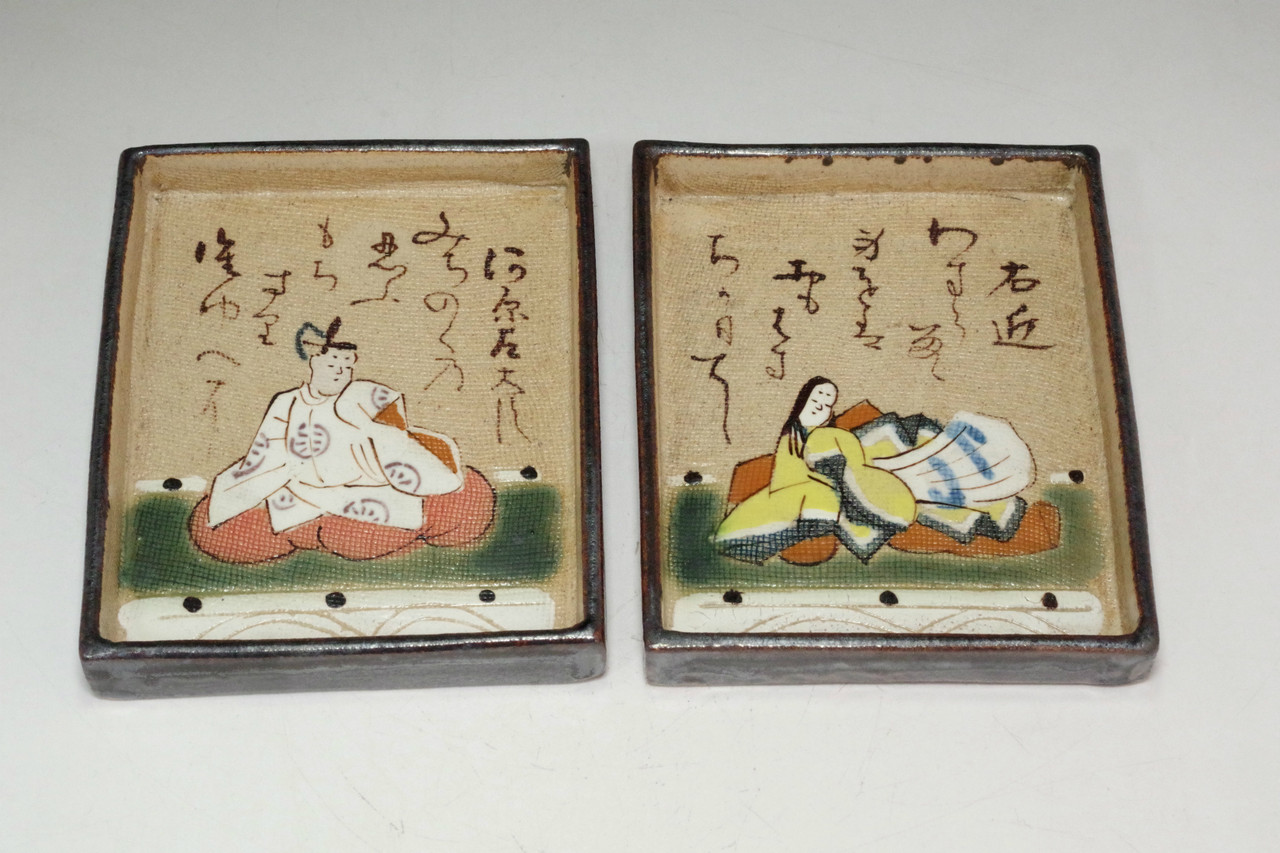 河原左大臣
みちのくの
忍ふ
もち
すり
誰ゆへに
右近
わすら
るゝ
身をは
おも
はす
ちかひてし